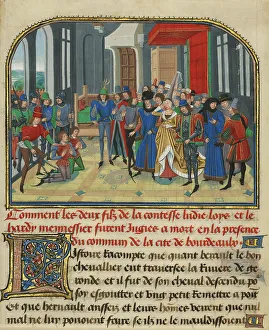 Comment les deux filz de la contesse ludie loys et le
hardy mennessier furent Jugies a mort en la presence
du commun de la cite de bourdeaulx
Istoire racompte que quant berault le bon
chevallier eut traverse la riviere de gi
ronde et il fut de son cheval descendu po
soy esgoutter et ung petit remettre a poit
Et que hernault ansseis et leurs hommes veirent que nul
mal ne luy pouoient faire se ilz ne le mauldissoient